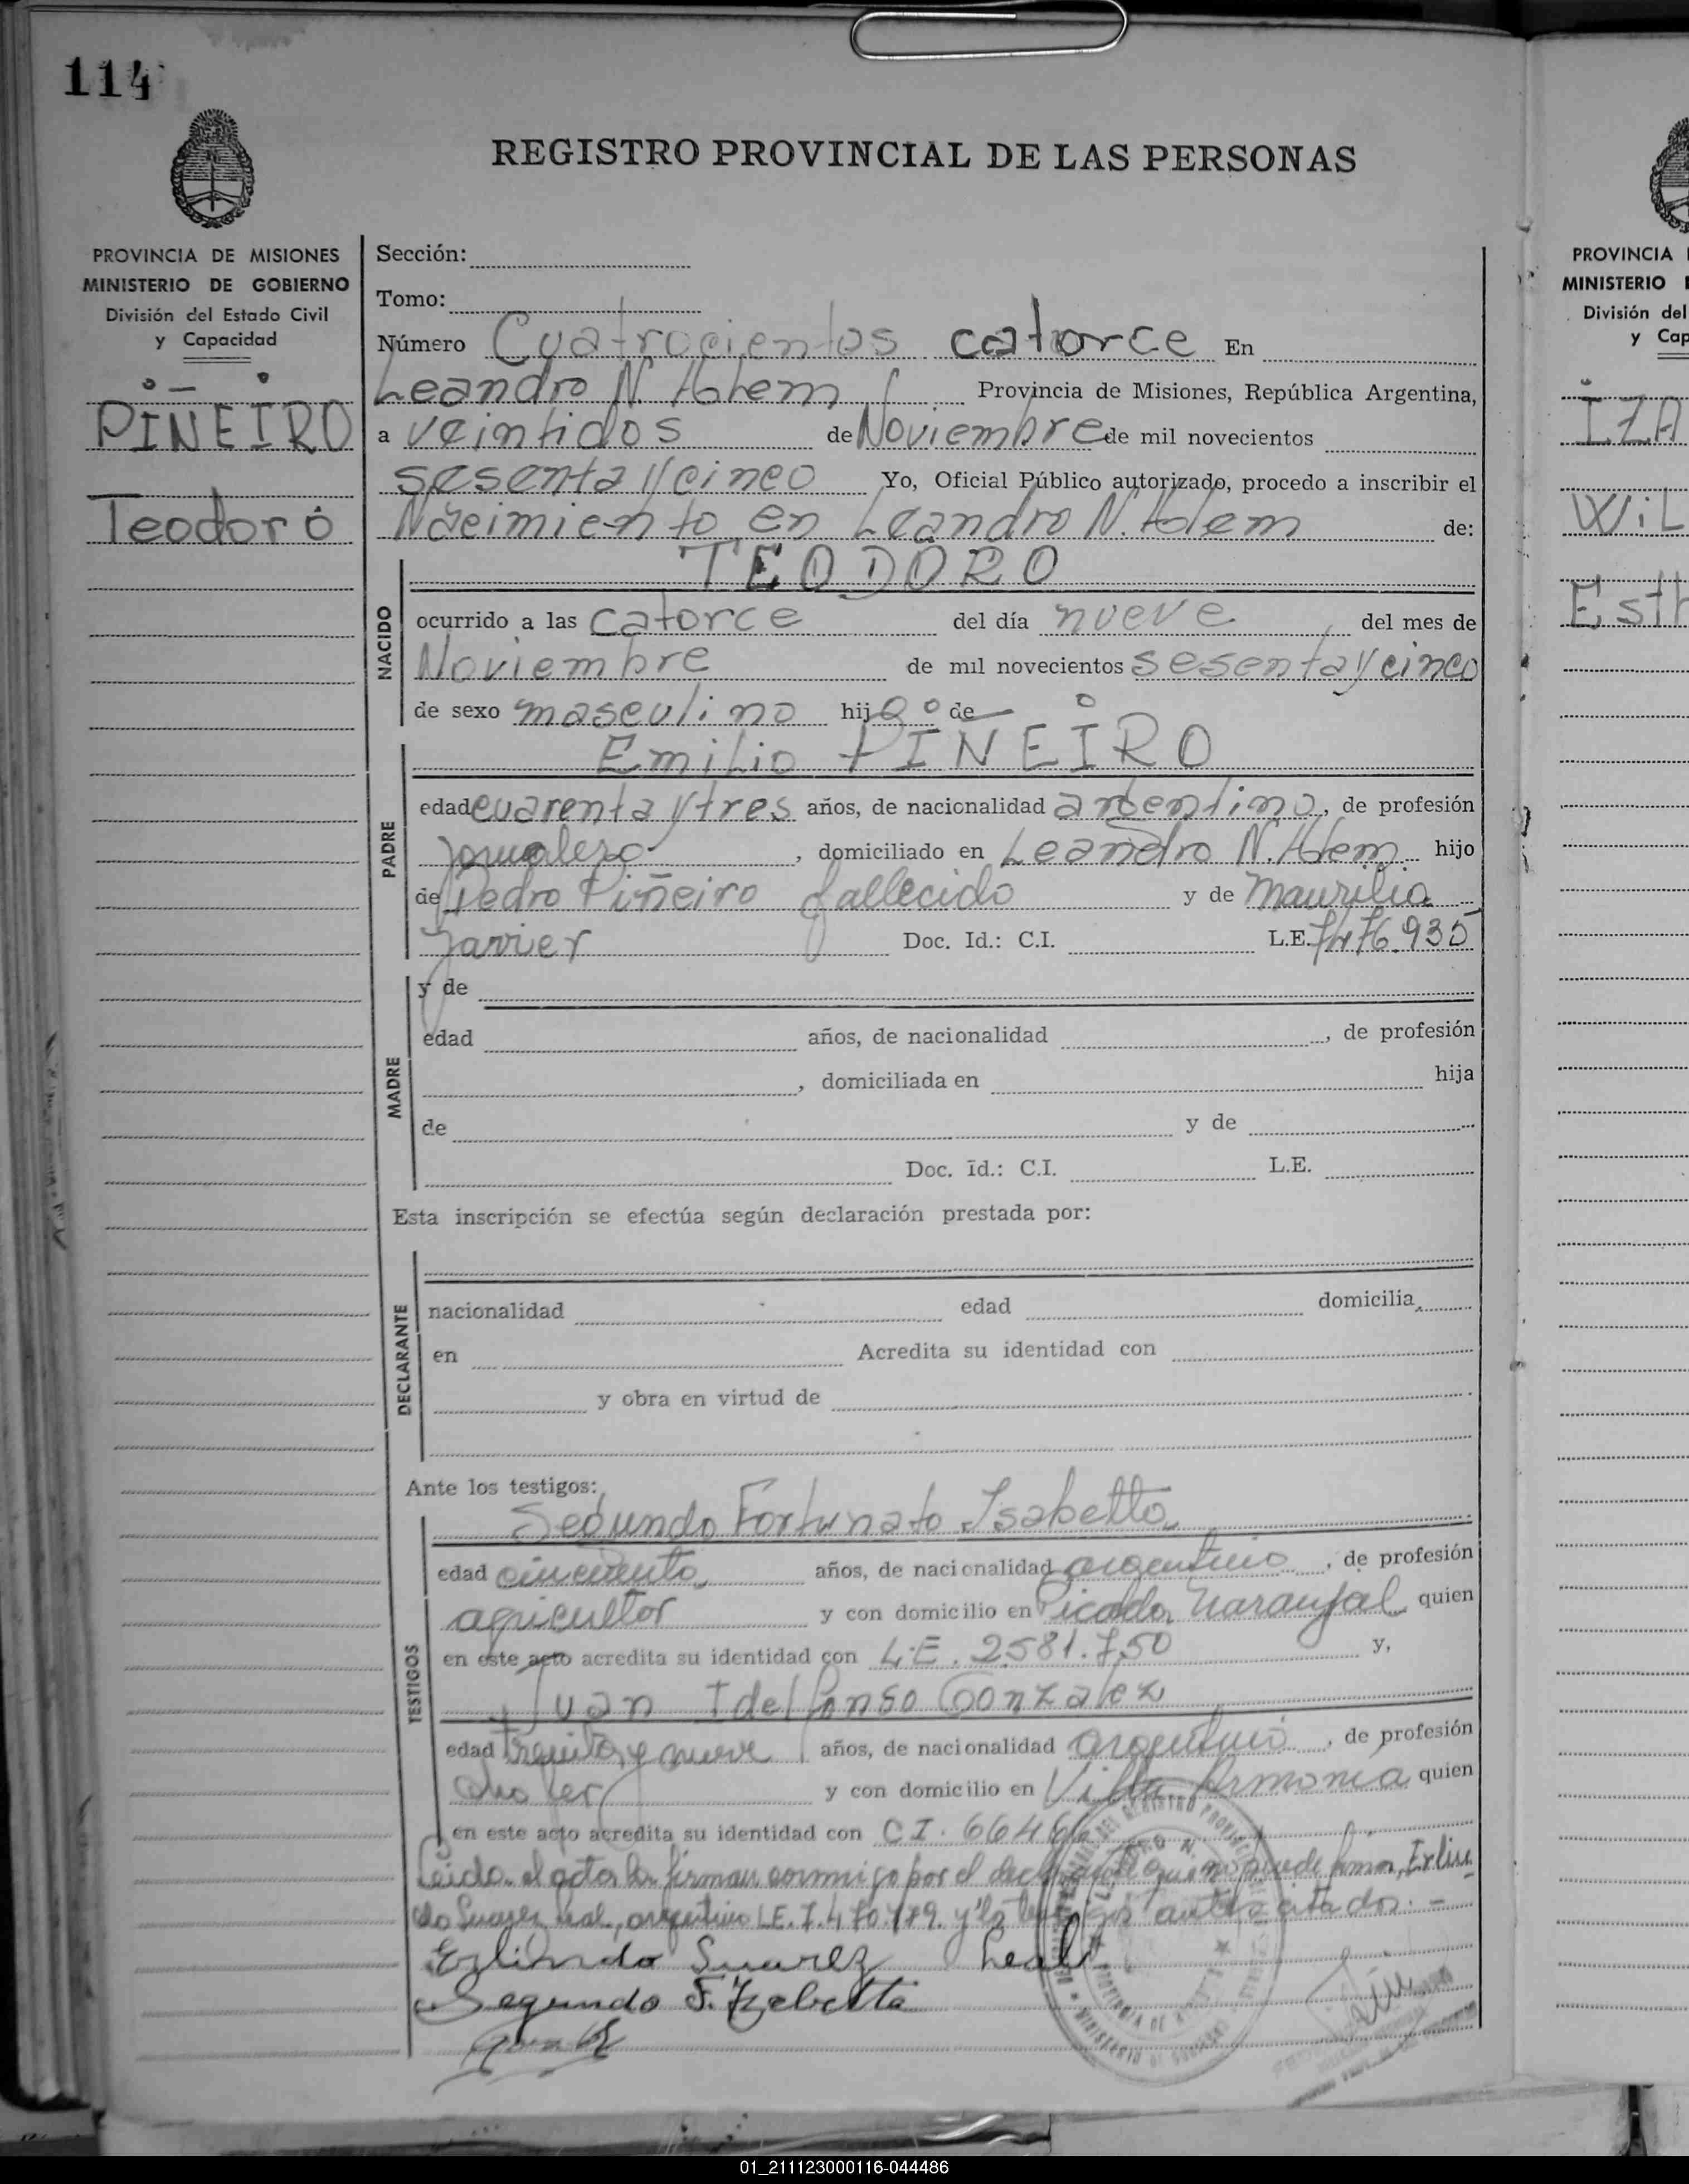 114
REGISTRO PROVINCIAL DE LAS PERSONAS
PROVINCIA DE MISIONES
MINISTERIO DE GOBIERNO
División del Estado Civil
y Capacidad
PIÑEIRO
Teodoro
Sección:
Tomo:
Número Cuatrocientos catorce En
Leandro N. Alem Provincia de Misiones, República Argentina,
a veintidos de Noviembre de mil novecientos
sesenta y cinco Yo, Oficial Público autorizado, procedo a inscribir el
Nacimiento en Leandro N. Alem de:
TEODORO
NACIDO
ocurrido a las catorce del día nueve del mes de
Noviembre de mil novecientos sesenta y cinco
de sexo masculino hijo de
Emilio PIÑEIRO
PADRE
edad cuarenta y tres años, de nacionalidad argentino, de profesión
Jornalero, domiciliado en Leandro N. Alem hijo
de Pedro Piñeiro fallecido y de Maurilia
Javier Doc. Id.: C.I. L.E. 7476935
MADRE
y de
edad años, de nacionalidad , de profesión
, domiciliada en hija
de y de
Doc. id.: C.I. L.E.
Esta inscripción se efectúa según declaración prestada por:
DECLARANTE
nacionalidad edad domicilia
en Acredita su identidad con
y obra en virtud de
Ante los testigos:
TESTIGOS
Segundo Fortunato Isabetto
edad cincuenta años, de nacionalidad argentino, de profesión
agricultor y con domicilio en Picada Naranjal quien
en este acto acredita su identidad con L.E. 2581.750 y,
Juan Idelfonso Gonzalez
edad treinta y nueve años, de nacionalidad argentino, de profesión
chofer y con domicilio en Villa Armonia quien
en este acto acredita su identidad con C I. 6646
Leida el acta la firman conmigo por el declarante que no puede firmar, Erlin
do Suarez Leal, argentino L.E. 7.470.779. y los testigos antes citados. -
Erlindo Suarez Leal
Segundo F. Izabetta
PROVINCIA
MINISTERIO
División del
y Cap
IZA
WiL
Esth
01_211123000116-044486